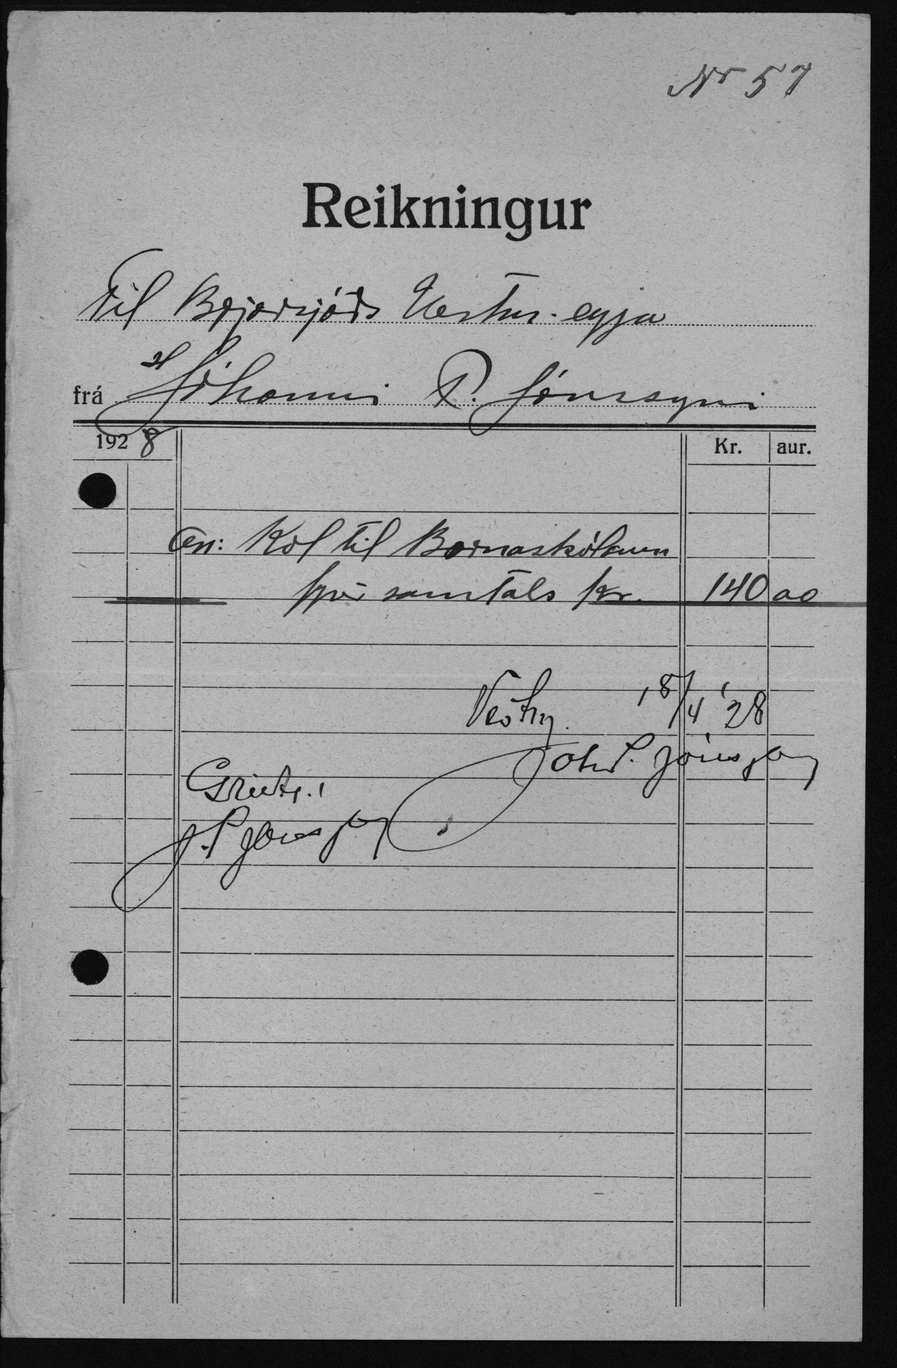 Nr 57
Reikningur
Til Bæjarsjóðs Vestm.eyja
frá Jóhanni P. Jónssyni
1928 Kr. aur.
An: Kol til Barnaskólann
fyrir samtals kr. 140 00
Vestm. 18/4 '28
Joh P. Jónsson
Greitt.
J. P. Jónsson